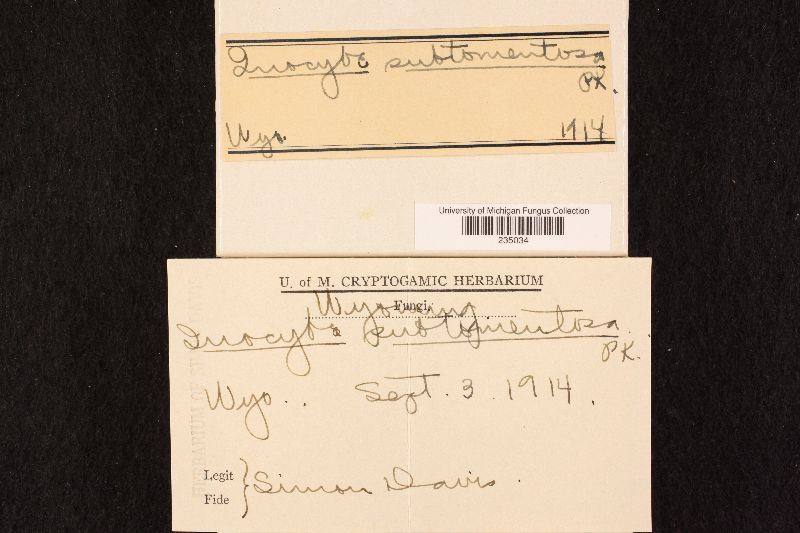 Inocybe subtomentosa
PK.
Wyo. 1914
University of Michigan Fungus Collection
235034
U. of M. CRYPTOGAMIC HERBARIUM
Wyoming
Fungi,
Inocybe subtomentosa
PK.
Wyo. . Sept. 3 1914.
Legit
Fide
Simon Davis.